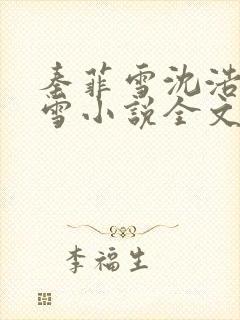 秦菲雪沈浩
雪小说全文
李福生